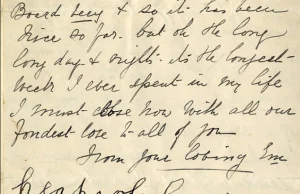 Board Secy & so it has been
nice so far. but oh the long
long day & night. its the longest
week I ever spent in my life
I must close now with all our
fondest love to all of you
from your loving Em